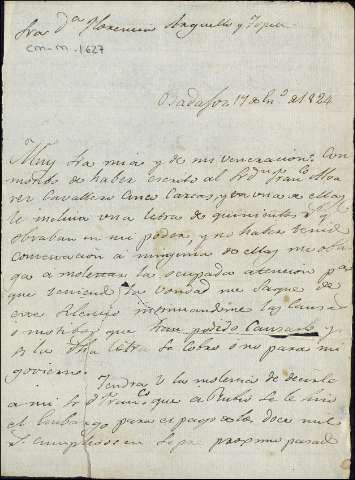 Sra Dª Florencia Arguelles y Tapia
CM-M-1627
Badajoz 17 de Enº de 1824
Muy Sra mia y de mi veneracion: Con
motivo de haber escrito al Sr Dn Franco Alva
rez Cavallero Cinco Cartas, y en una de ellas
le incluia una letra de quinientos r
obraban en mi poder, y no haber tenido
Contestacion a ninguna de ellas me obli
ga a molestar la ocupada atencion pa
que teniendo la vondad me saque de
este Cuidado informandome las causas
o motibos que han podido Causarlo y
si la dha letra se cobro o no para mi
govierno.
Tendra V la molestia de decirle
a mi Sr Dn Franco que a Rubio se le hizo
el embargo para el pago de los doce mil
r cumplidos en Sepe proximo pasado